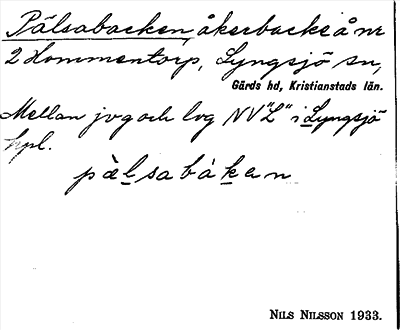 Pålsabacken, åkerbacke å nr
2 Hommentorp, Lyngsjö sn,
Gärds hd, Kristianstads län.
Mellan jvg och lvg NV "L" i Lyngsjö
hpl.
pålsabákan
NILS NILSSON 1933.